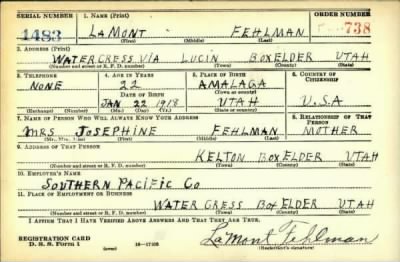 SERIAL NUMBER 1. NAME (Print) ORDER NUMBER
1483 LaMONT FEHLMAN 738
(First) (Middle) (Last)
2. ADDRESS (Print)
WATERCRESS VIA LUCIN BOXELDER UTAH
(Number and street or R. F. D. number) (Town) (County) (State)
3. TELEPHONE 4. AGE IN YEARS 5. PLACE OF BIRTH 6. COUNTRY OF CITIZENSHIP
NONE 22 AMALAGA
DATE OF BIRTH (Town or county)
JAN 22 1918 UTAH U.S.A
(Exchange) (Number) (Mo.) (Day) (Yr.) (State or country)
7. NAME OF PERSON WHO WILL ALWAYS KNOW YOUR ADDRESS 8. RELATIONSHIP OF THAT PERSON
MRS JOSEPHINE FEHLMAN MOTHER
(Mr., Mrs., Miss) (First) (Middle) (Last)
9. ADDRESS OF THAT PERSON
KELTON BOXELDER UTAH
(Number and street or R. F. D. number) (Town) (County) (State)
10. EMPLOYER'S NAME
SOUTHERN PACIFIC CO
11. PLACE OF EMPLOYMENT OR BUSINESS
WATER CRESS BOX ELDER UTAH
(Number and street or R. F. D. number) (Town) (County) (State)
I AFFIRM THAT I HAVE VERIFIED ABOVE ANSWERS AND THAT THEY ARE TRUE.
REGISTRATION CARD
D. S. S. Form 1 16—17105 LaMont Fehlman
(Registrant's signature)